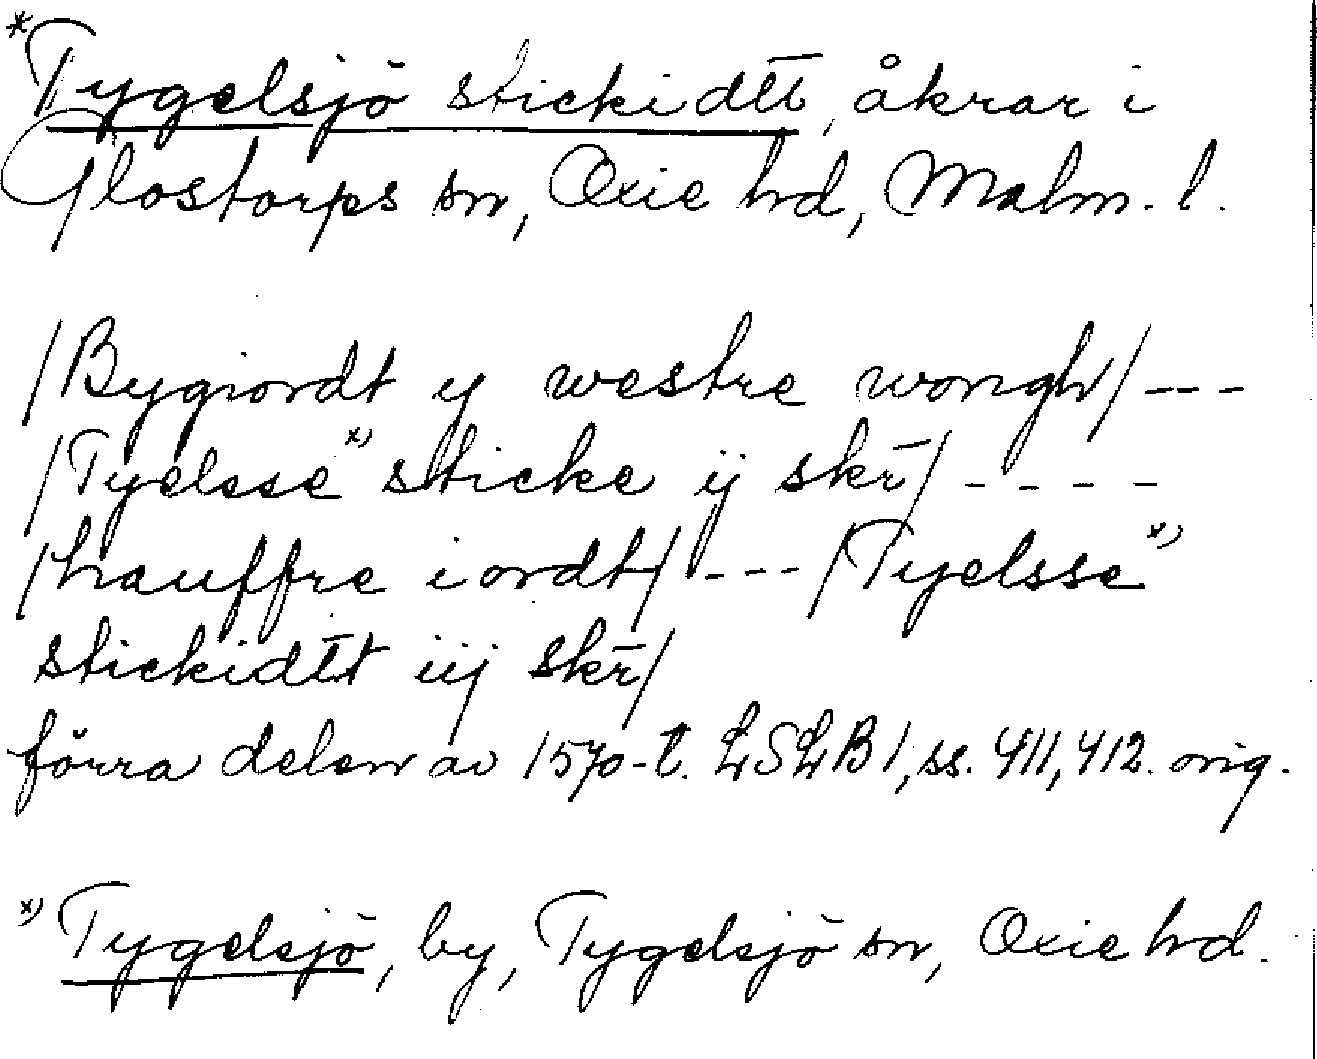 *Tygelsjö stickidtt, åkrar i
Glostorps sn, Oxie hd, Malm. l.
/Bygiordt y westre wongh/ ---
/Tyelsse x) sticke ij skr̄/ - - - -
/hauffre iordt/ --- /Tyelsse x)
stickidtt iij skr̄/
förra delen av 1570-t. LSLB1, ss. 411, 412. orig.
x) Tygelsjö, by, Tygelsjö sn, Oxie hd.